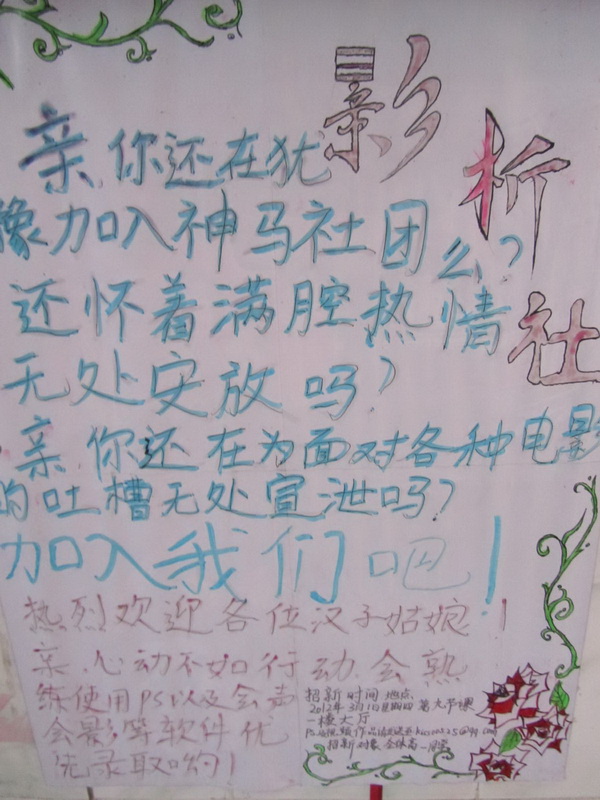 影析社
亲,你还在犹
豫加入神马社团么?
还怀着满腔热情
无处安放吗?
亲,你还在为面对各种电影
的吐槽无处宣泄吗?
加入我们吧!
热烈欢迎各位汉子姑娘!
亲,心动不如行动.会熟
练使用PS以及会声
会影等软件优
先录取哟!
招新时间地点
2012年3月1日星期四 第九节课
一楼大厅
招新对象:全体高一同学